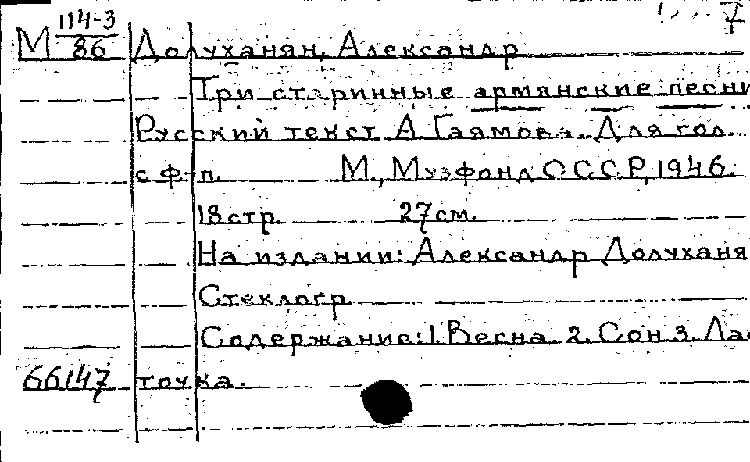 7
М 114-3/86 Долуханян, Александр
Три старинные армянские песни
Русский текст А. Гаямова. Для гол.
с ф-п. М., Музфонд СССР, 1946.
18 стр. 27 см.
На издании: Александр Долуханя
Стеклогр.
Содержание: 1. Весна. 2. Сон 3. Лас
66147 точка.